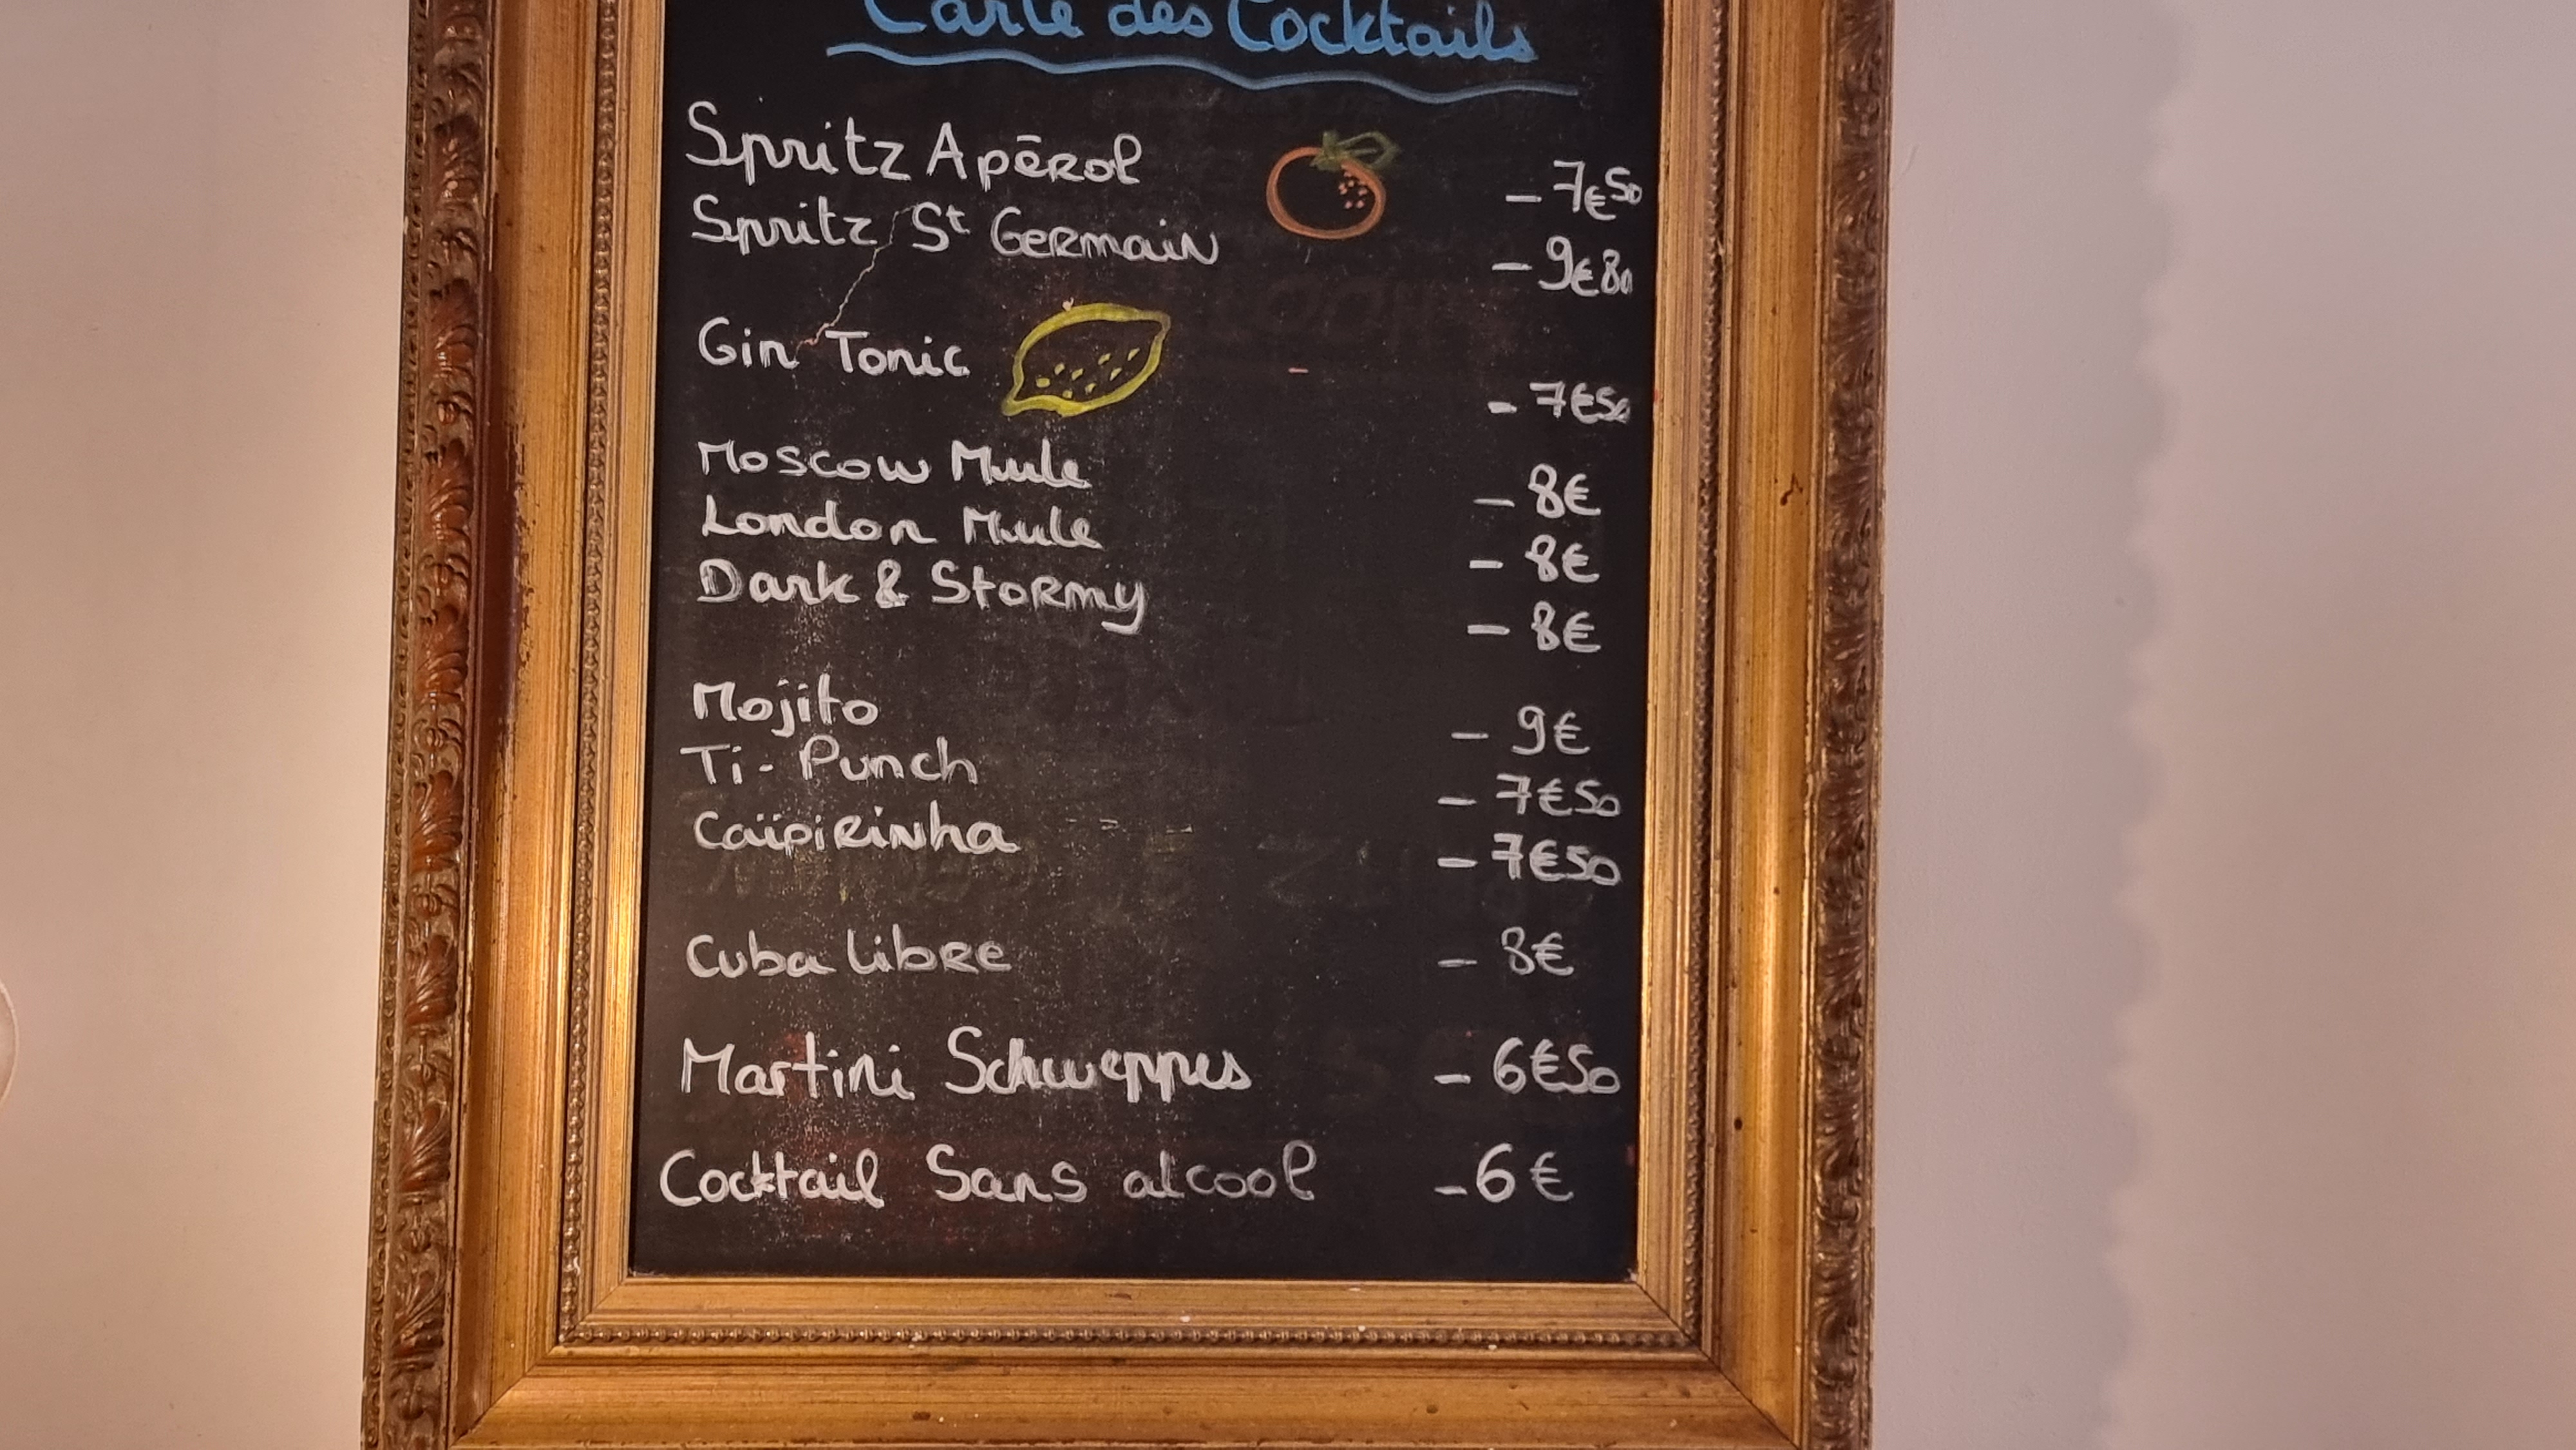 Carte des Cocktails
Spritz Apērol - 7€50
Spritz St Germain - 9€80
Gin Tonic - 7€50
Moscow Mule - 8€
London Mule - 8€
Dark & Stormy - 8€
Mojito - 9€
Ti-Punch - 7€50
Caïpirinha - 7€50
Cuba Libre - 8€
Martini Schweppes - 6€50
Cocktail Sans alcool - 6€